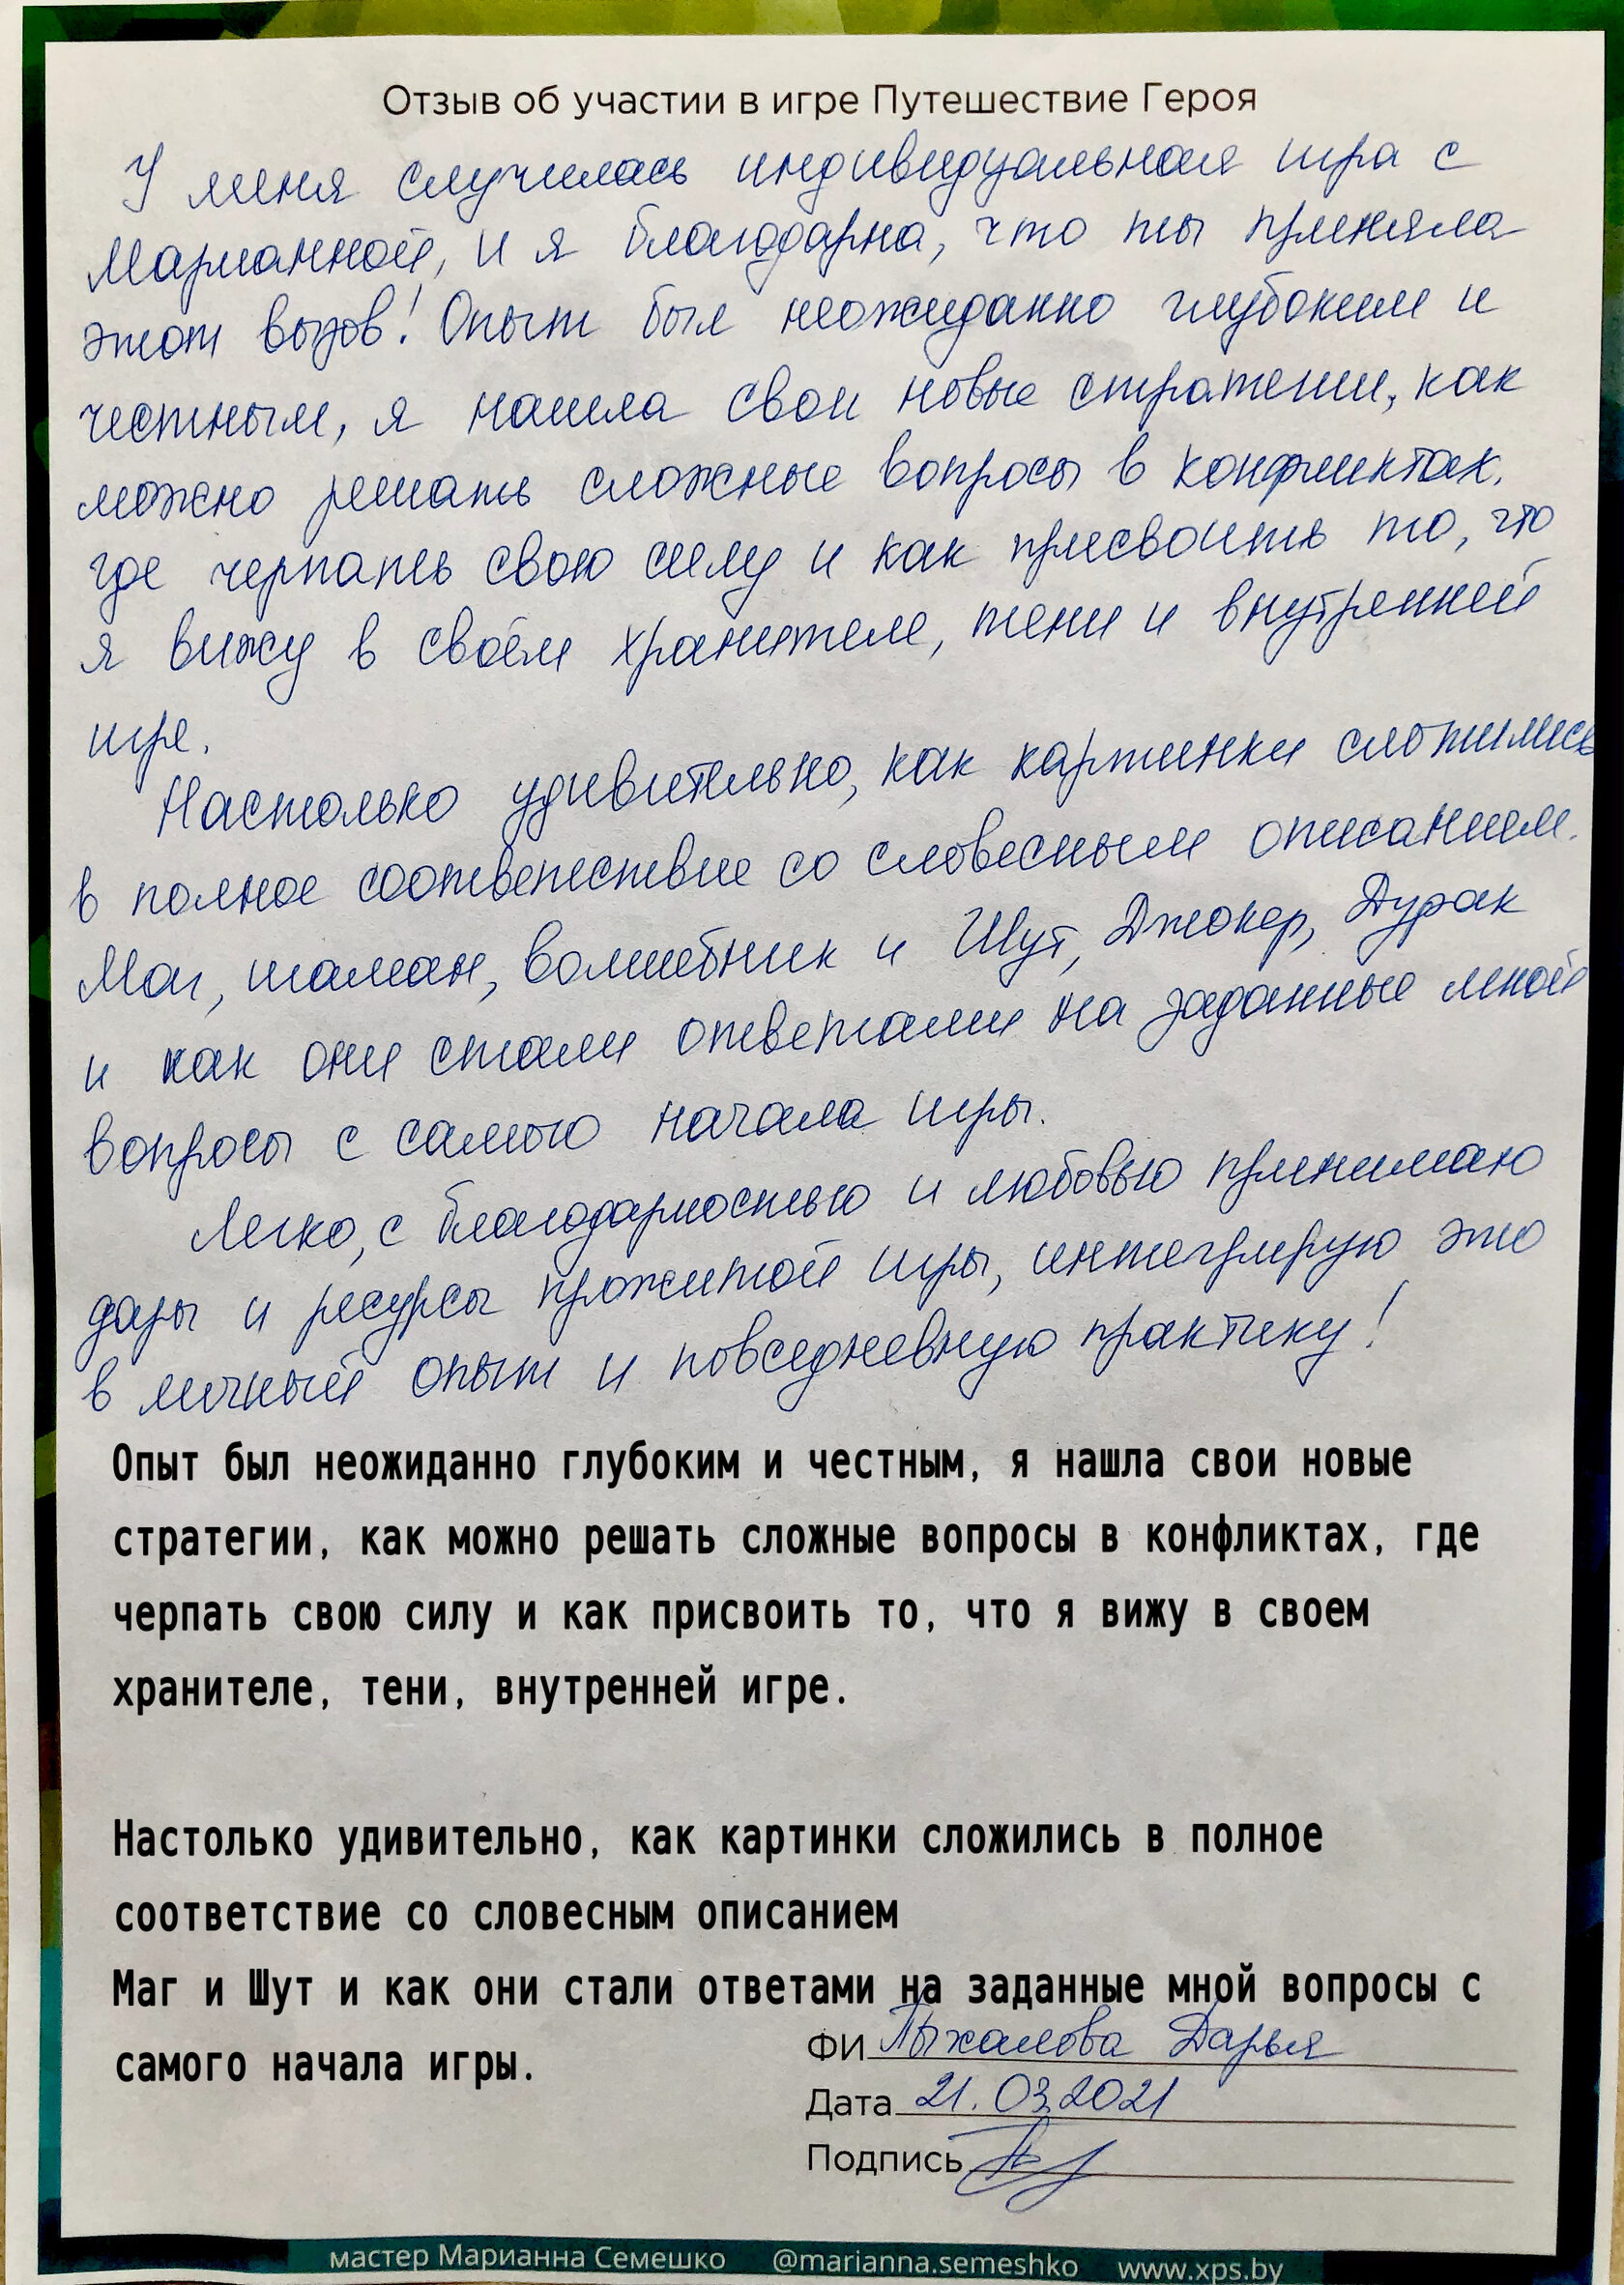 Отзыв об участии в игре Путешествие Героя
У меня случилась индивидуальная игра с
Марианной, и я благодарна, что ты приняла
этот вызов! Опыт был неожиданно глубоким и
честным, я нашла свои новые стратегии, как
можно решать сложные вопросы в конфликтах.
где черпать свою силу и как присвоить то, что
я вижу в своём хранителе, тени и внутренней
игре.
Настолько удивительно, как картинки сложились
в полное соответствие со словесным описанием.
Маг, шаман, волшебник и Шут, Джокер, Дурак
и как они стали ответами на заданные мной
вопросы с самого начала игры.
Легко, с благодарностью и любовью принимаю
дары и ресурсы прожитой игры, интегрирую это
в личный опыт и повседневную практику!
Опыт был неожиданно глубоким и честным, я нашла свои новые
стратегии, как можно решать сложные вопросы в конфликтах, где
черпать свою силу и как присвоить то, что я вижу в своем
хранителе, тени, внутренней игре.
Настолько удивительно, как картинки сложились в полное
соответствие со словесным описанием
Маг и Шут и как они стали ответами на заданные мной вопросы с
самого начала игры.
ФИ Дарья
Дата 21.03.2021
Подпись
мастер Марианна Семешко @marianna.semeshko www.xps.by